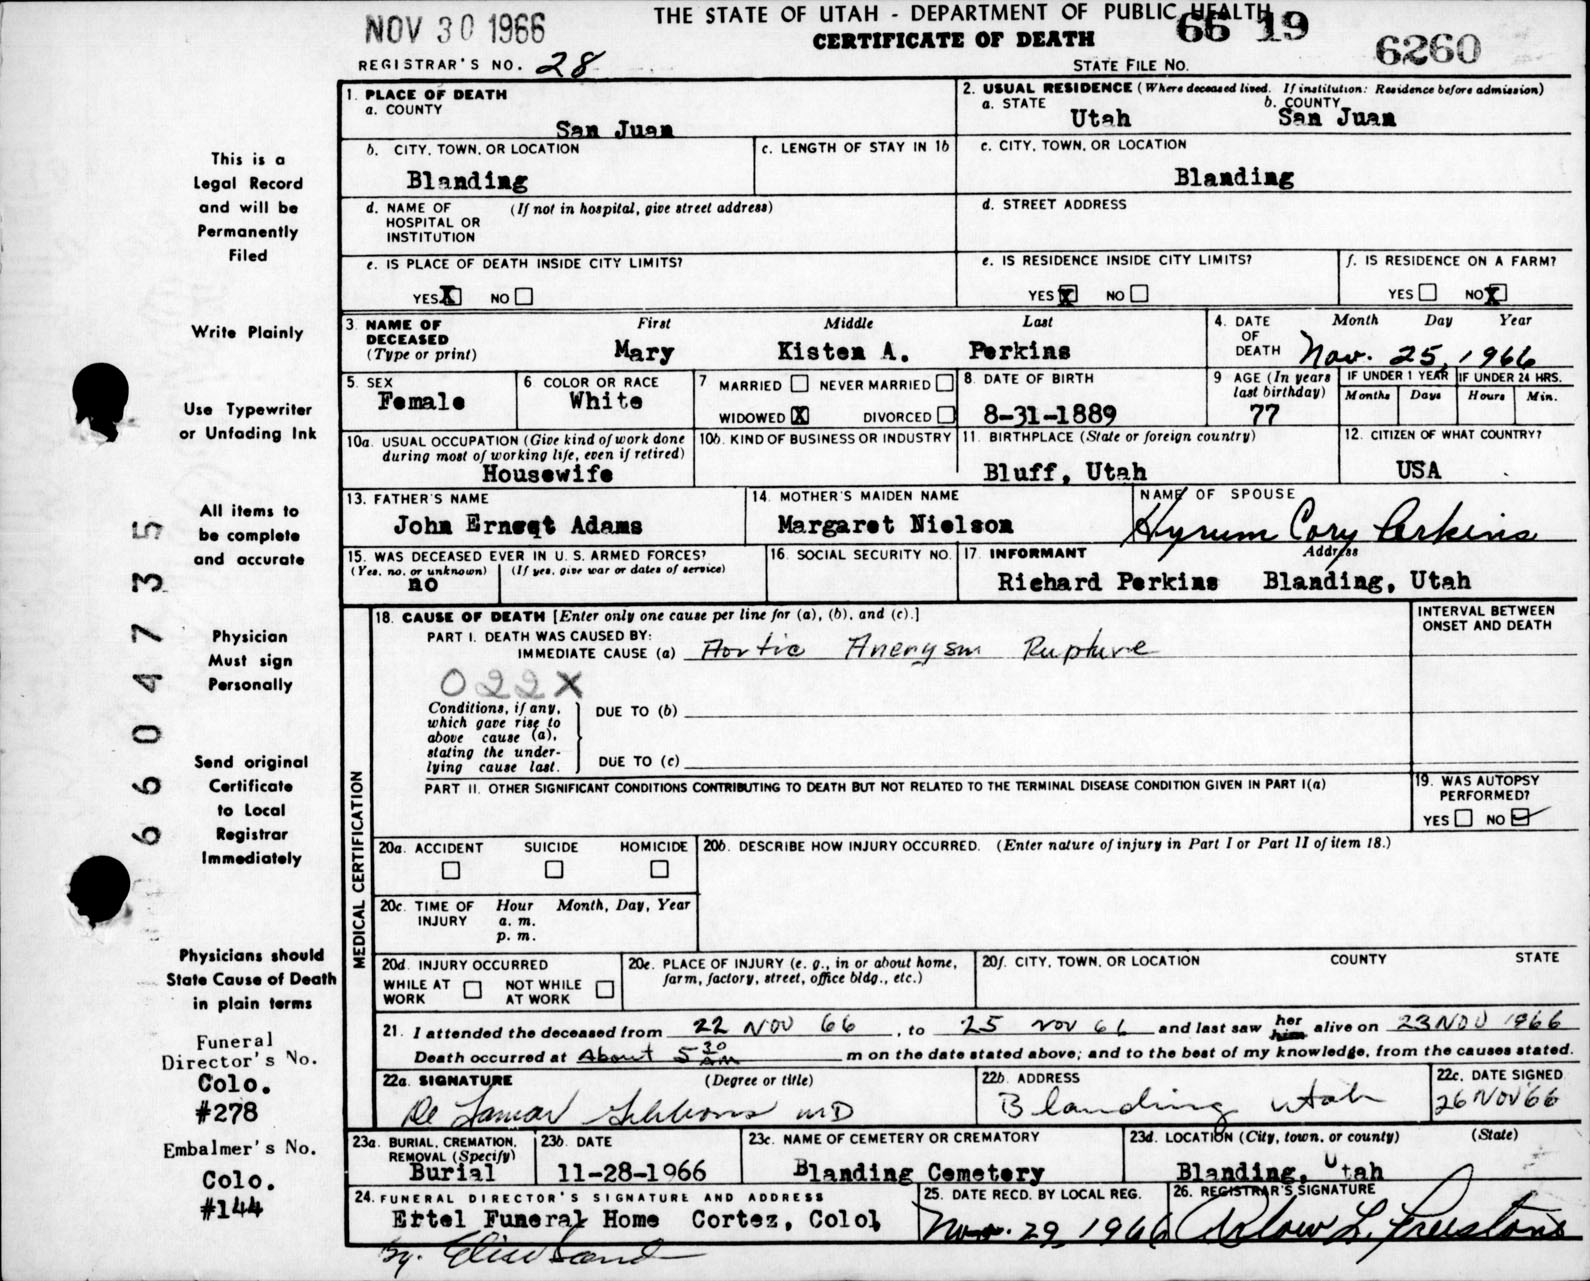 NOV 30 1966
THE STATE OF UTAH - DEPARTMENT OF PUBLIC HEALTH
66 19
CERTIFICATE OF DEATH
REGISTRAR'S NO. 28
STATE FILE NO.
6260
1. PLACE OF DEATH
a. COUNTY
San Juan
2. USUAL RESIDENCE (Where deceased lived. If institution: Residence before admission)
a. STATE
Utah
b. COUNTY
San Juan
b. CITY, TOWN, OR LOCATION
Blanding
c. LENGTH OF STAY IN 1b
c. CITY, TOWN, OR LOCATION
Blanding
d. NAME OF HOSPITAL OR INSTITUTION
(If not in hospital, give street address)
d. STREET ADDRESS
e. IS PLACE OF DEATH INSIDE CITY LIMITS?
YES X NO
e. IS RESIDENCE INSIDE CITY LIMITS?
YES X NO
f. IS RESIDENCE ON A FARM?
YES NO X
3. NAME OF DECEASED
(Type or print)
First Middle Last
Mary Kisten A. Perkins
4. DATE OF DEATH
Month Day Year
Nov. 25, 1966
5. SEX
Female
6 COLOR OR RACE
White
7 MARRIED NEVER MARRIED
WIDOWED X DIVORCED
8. DATE OF BIRTH
8-31-1889
9 AGE (In years last birthday)
77
IF UNDER 1 YEAR
Months Days
IF UNDER 24 HRS.
Hours Min.
10a. USUAL OCCUPATION (Give kind of work done
during most of working life, even if retired)
Housewife
10b. KIND OF BUSINESS OR INDUSTRY
11. BIRTHPLACE (State or foreign country)
Bluff, Utah
12. CITIZEN OF WHAT COUNTRY?
USA
13. FATHER'S NAME
John Erneqt Adams
14. MOTHER'S MAIDEN NAME
Margaret Nielson
NAME OF SPOUSE
Hyrum Cory Perkins
15. WAS DECEASED EVER IN U. S. ARMED FORCES?
(Yes, no, or unknown)
(If yes, give war or dates of service)
no
16. SOCIAL SECURITY NO.
17. INFORMANT
Address
Richard Perkins Blanding, Utah
MEDICAL CERTIFICATION
18. CAUSE OF DEATH [Enter only one cause per line for (a), (b), and (c).]
INTERVAL BETWEEN
ONSET AND DEATH
PART I. DEATH WAS CAUSED BY:
IMMEDIATE CAUSE (a) Aortic Anerysm Rupture
022X
Conditions, if any,
which gave rise to
above cause (a),
stating the under-
lying cause last.
DUE TO (b)
DUE TO (c)
PART II. OTHER SIGNIFICANT CONDITIONS CONTRIBUTING TO DEATH BUT NOT RELATED TO THE TERMINAL DISEASE CONDITION GIVEN IN PART I(a)
19. WAS AUTOPSY
PERFORMED?
YES NO
20a. ACCIDENT SUICIDE HOMICIDE
20b. DESCRIBE HOW INJURY OCCURRED. (Enter nature of injury in Part I or Part II of item 18.)
20c. TIME OF INJURY
Hour Month, Day, Year
a. m.
p. m.
20d. INJURY OCCURRED
WHILE AT WORK
NOT WHILE AT WORK
20e. PLACE OF INJURY (e. g., in or about home,
farm, factory, street, office bldg., etc.)
20f. CITY, TOWN, OR LOCATION COUNTY STATE
21. I attended the deceased from 22 NOV 66, to 25 NOV 66 and last saw her him alive on 23 NOV 1966
Death occurred at About 5 30 AM m on the date stated above; and to the best of my knowledge, from the causes stated.
22a. SIGNATURE (Degree or title)
De Lamar Gibbons MD
22b. ADDRESS
Blanding Utah
22c. DATE SIGNED
26 NOV 66
23a. BURIAL, CREMATION,
REMOVAL (Specify)
Burial
23b. DATE
11-28-1966
23c. NAME OF CEMETERY OR CREMATORY
Blanding Cemetery
23d. LOCATION (City, town, or county) (State)
Blanding, Utah
24. FUNERAL DIRECTOR'S SIGNATURE AND ADDRESS
Ertel Funeral Home Cortez, Colo.
by.
25. DATE RECD. BY LOCAL REG.
Nov. 29, 1966
26. REGISTRAR'S SIGNATURE
This is a
Legal Record
and will be
Permanently
Filed
Write Plainly
Use Typewriter
or Unfading Ink
All items to
be complete
and accurate
Physician
Must sign
Personally
Send original
Certificate
to Local
Registrar
Immediately
Physicians should
State Cause of Death
in plain terms
Funeral
Director's No.
Colo.
#278
Embalmer's No.
Colo.
#144
6604735